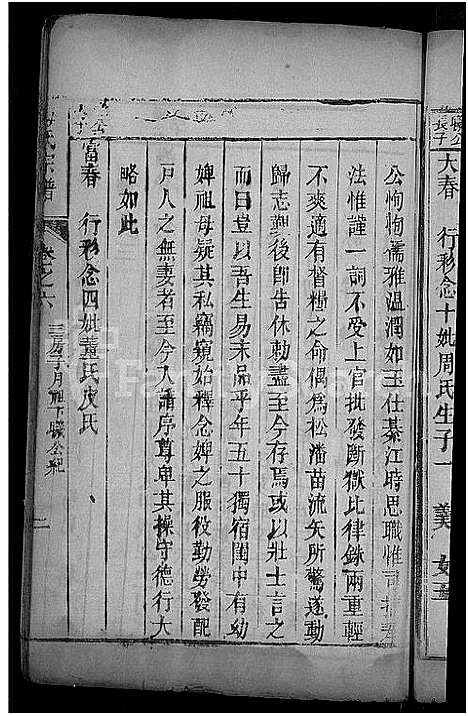 大春 行移念十妣周氏生子一 羙 女五
公恂恂儒雅溫潤如玉仕綦江時恩職惟司
法惟謹一詞不受上官批發斷獄比律銖兩重輕
不爽適有督糧之命偶為松潘苗流矢所驚遂動
歸志艱後卽告休勅盡至今存焉或以壯士言之
而曰豈以吾生易末品乎年五十獨宿閨中有幼
婢祖母疑其私竊窺始釋念婢之服役勤勞發配
戸人之無妻者至今人誦序尊卑其操守德行大
略如此
富春 行移念四妣董氏皮氏
氏宗譜
卷之六
三房子月祖下 公紀
二